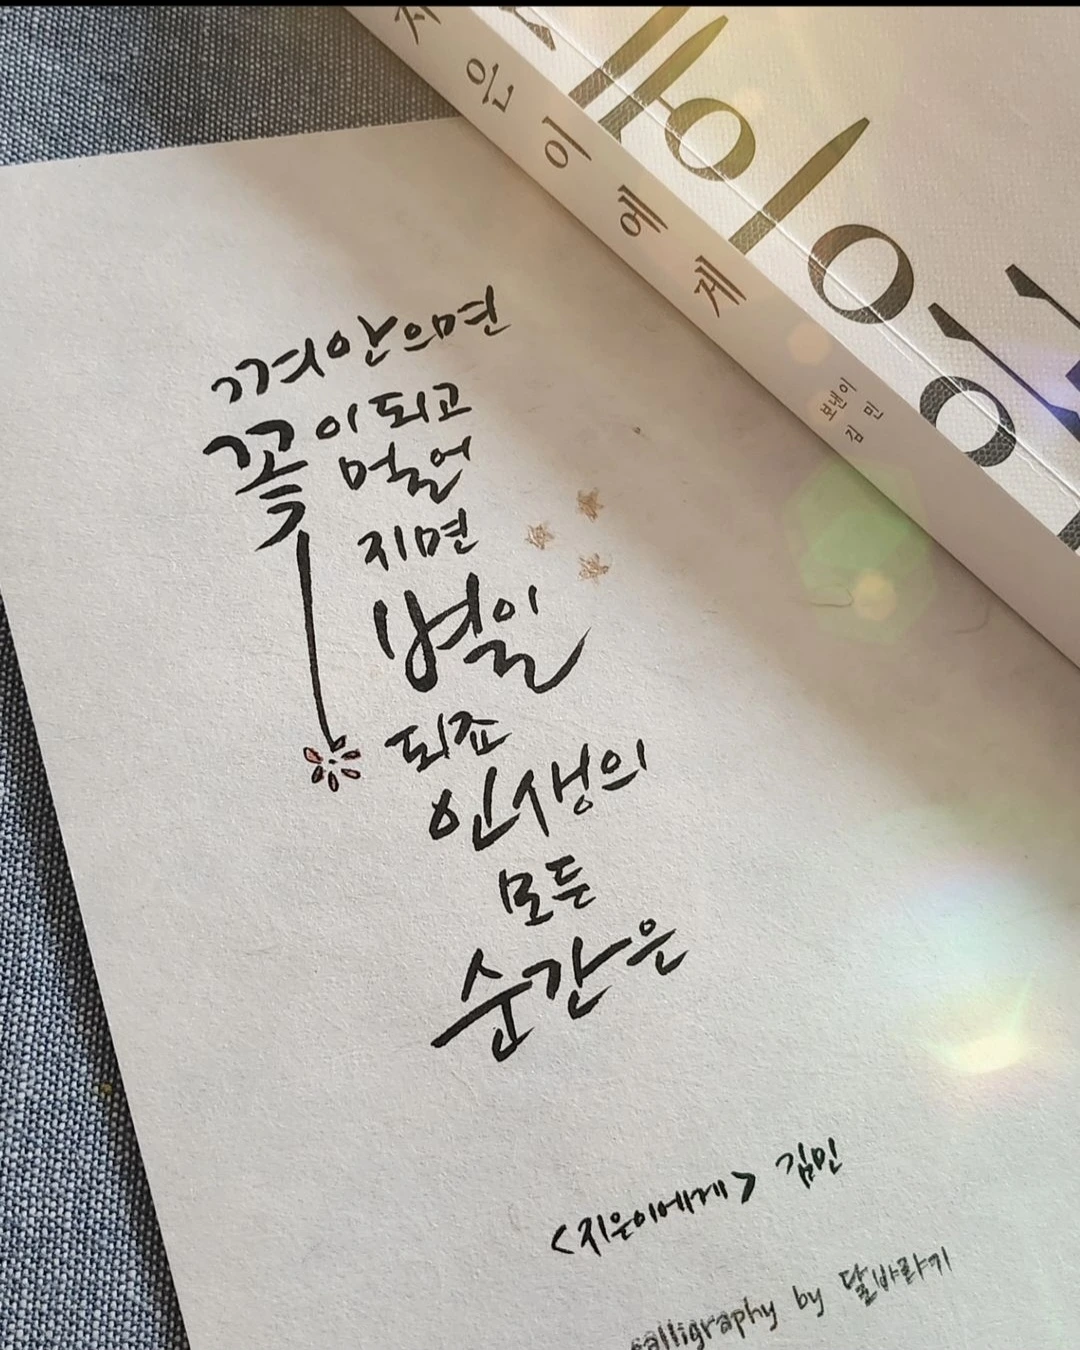 지은이에게
보낸이
김 민
껴안으면
꽃이 되고
멀어
지면
별이
되죠
인생의
모든
순간은
<지은이에게> 김민
calligraphy by 달바라기